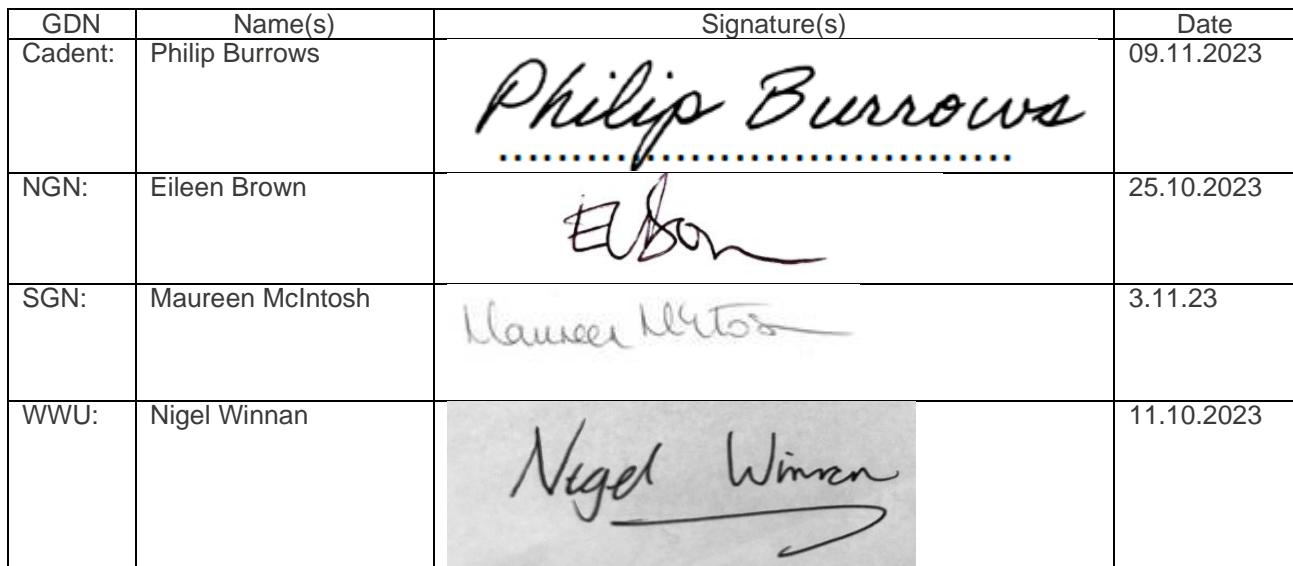 GDN Name(s) Signature(s) Date
Cadent: Philip Burrows Philip Burrows 09.11.2023
NGN: Eileen Brown 25.10.2023
SGN: Maureen McIntosh Maureen 3.11.23
WWU: Nigel Winnan Nigel Winnan 11.10.2023